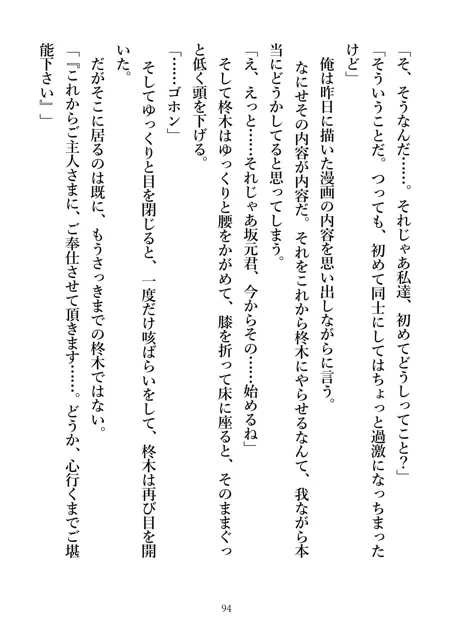 「そ、そうなんだ……。それじゃあ私達、初めてどうしってこと？」
「そういうことだ。つっても、初めて同士にしてはちょっと過激になっちまった
けど」
　俺は昨日に描いた漫画の内容を思い出しながらに言う。
　なにせその内容が内容だ。それをこれから柊木にやらせるなんて、我ながら本
当にどうかしてると思ってしまう。
「え、えっと……それじゃあ坂元君、今からその……始めるね」
　そして柊木はゆっくりと腰をかがめて、膝を折って床に座ると、そのままぐっ
と低く頭を下げる。
「……ゴホン」
　そしてゆっくりと目を閉じると、一度だけ咳ばらいをして、柊木は再び目を開
いた。
　だがそこに居るのは既に、もうさっきまでの柊木ではない。
「『これからご主人さまに、ご奉仕させて頂きます……。どうか、心行くまでご堪
能下さい』」
94